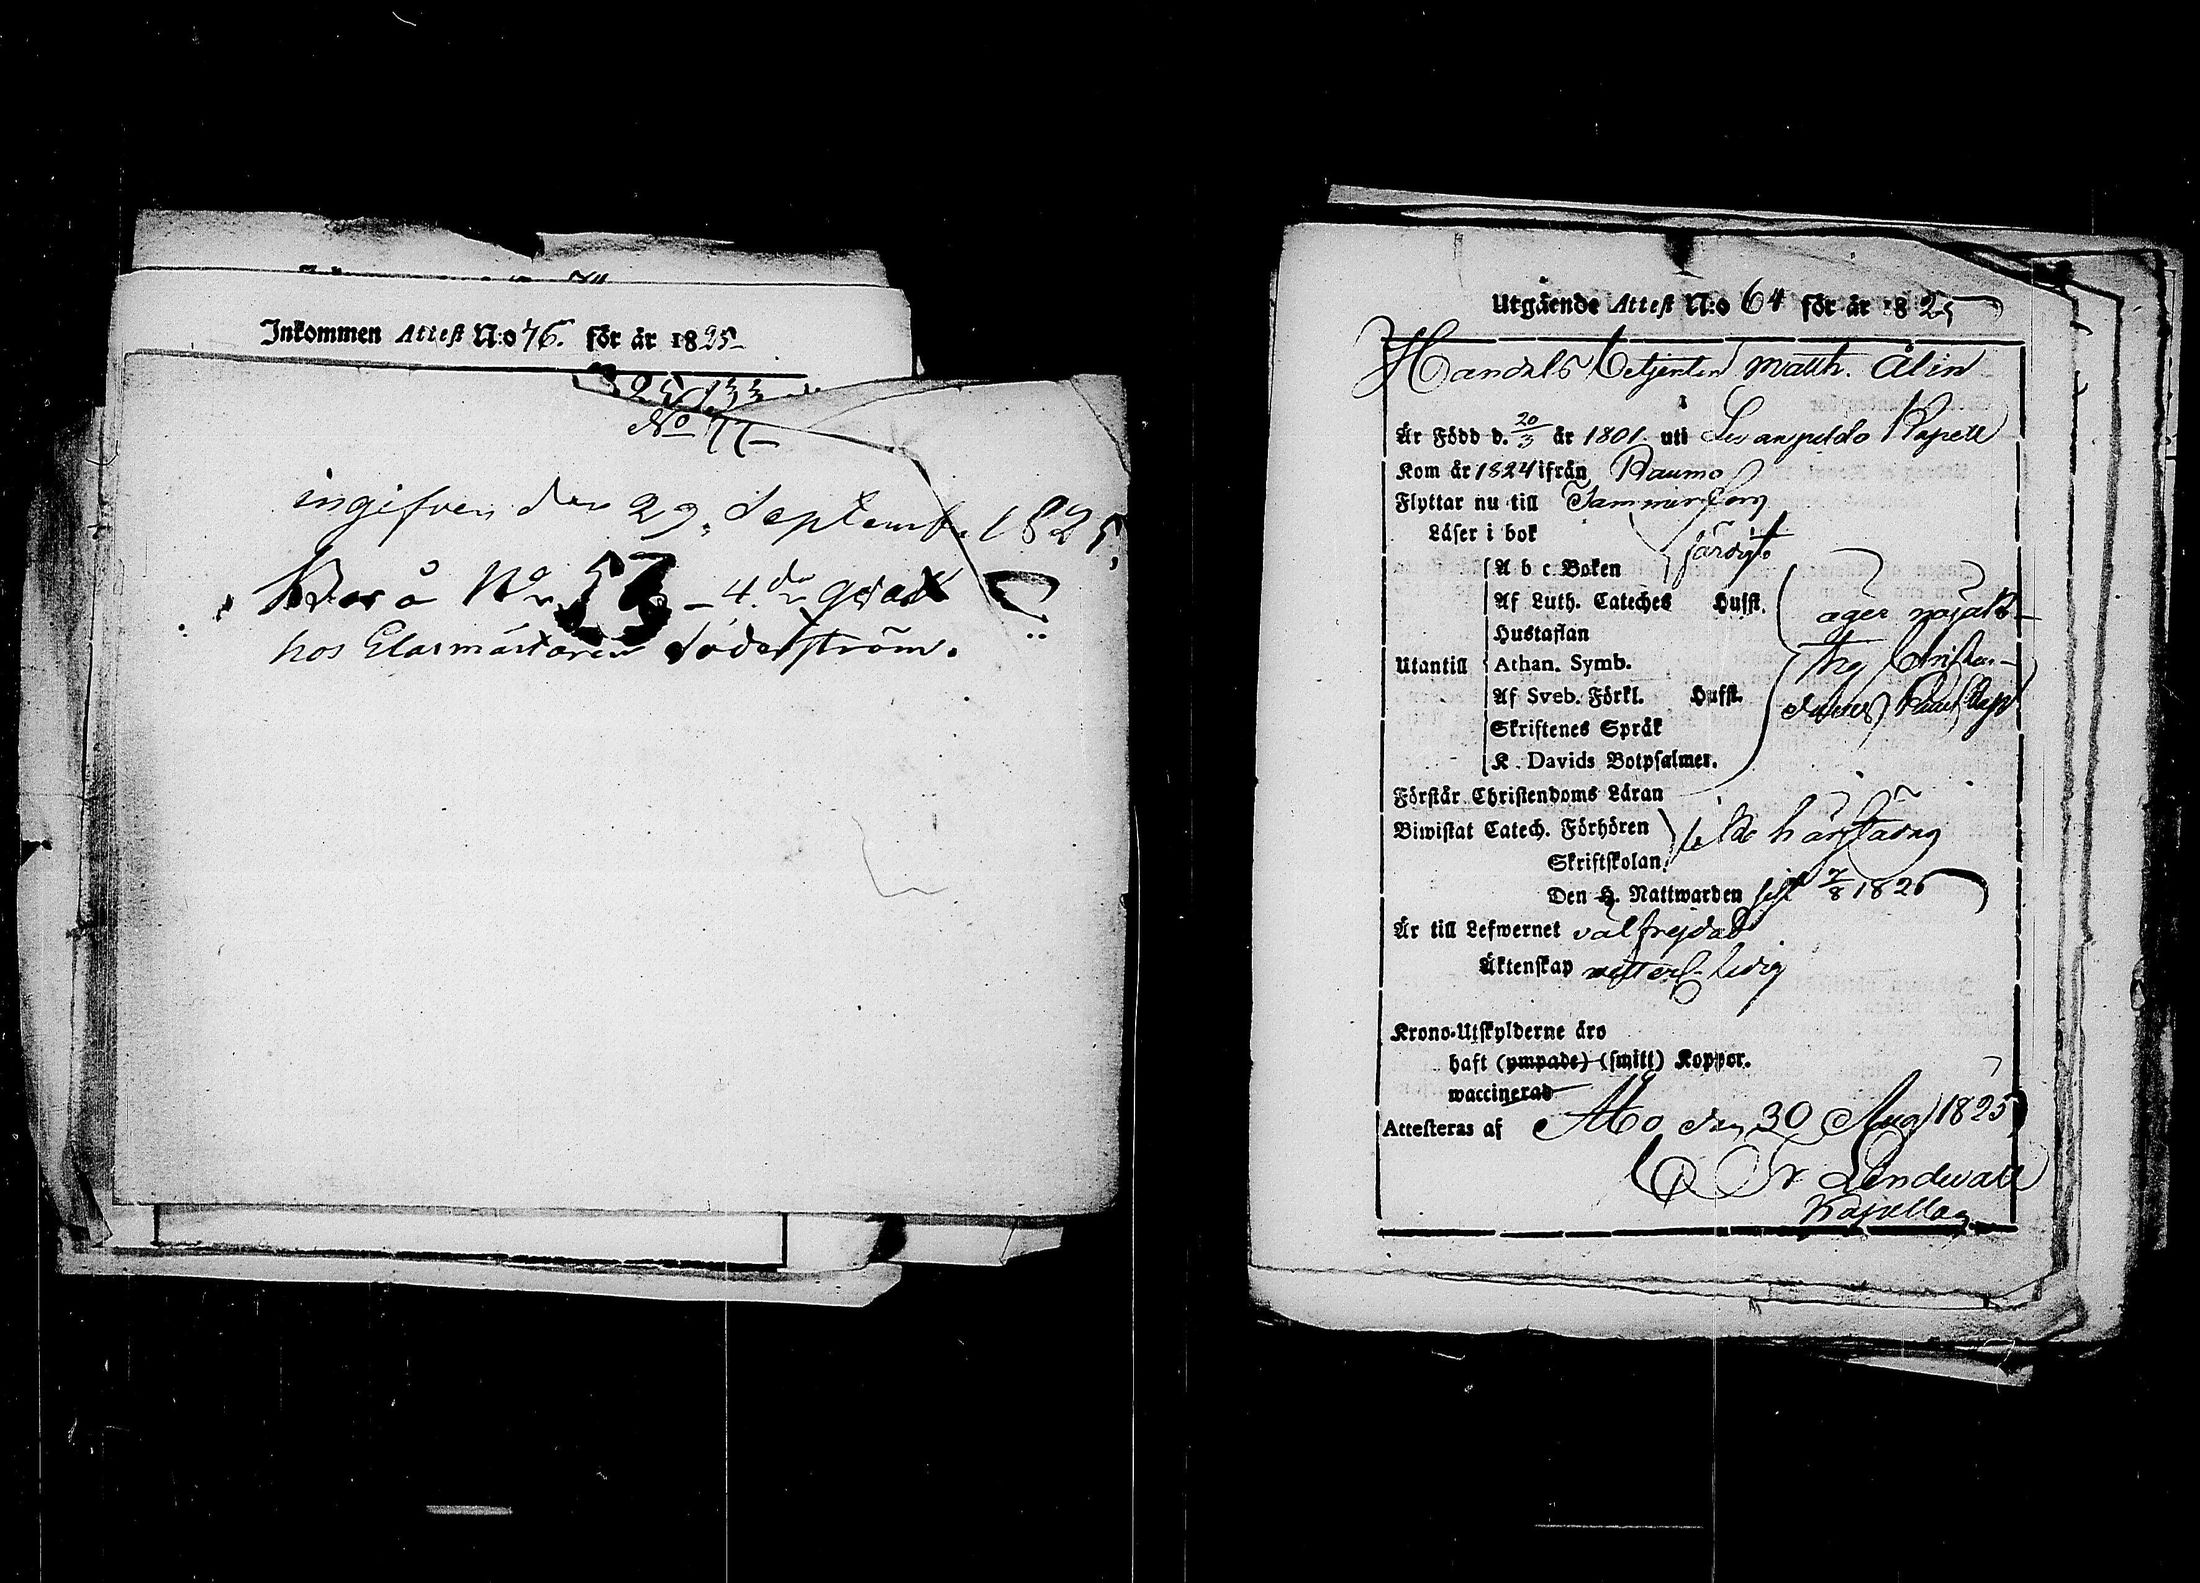 Inkommen Attest N:o 76. för år 1825
1825/133
No 77
ingifven den 29. Septemb. 1825.
Bor å No 53 – 4.de qvart
hos Glasmästaren Söderström.
Utgående Attest N:o 64 för år 1825
Handels betjenten Matth. Ålin
Är Född d. 20/3 år 1801. uti Kapell
Kom år 1824 ifrån Raumo
Flyttar nu till Tammerfors
Läser i bok färdigt
A b c Boken
Af Luth. Cateches Hufst. äger nöjakt-
Hustaflan
Utantill Athan. Symb. lig Christen-
Af Sveb. Förkl. Hufst. doms Kunskap
Skriftenes Språk
K. Davids Botpsalmer.
Förstår Christendoms Läran
Biwistat Catech. Förhören
Skriftskolan.
Den H. Nattwarden sist 7/8 1825
Är till Lefwernet välfrejdad
Äktenskap ledig
Krono-Utskylderne äro
haft (ympade) (smitt) Koppor.
waccinerad
Attesteras af Åbo den 30 Aug 1825
Fr Lindwall
Kapellag